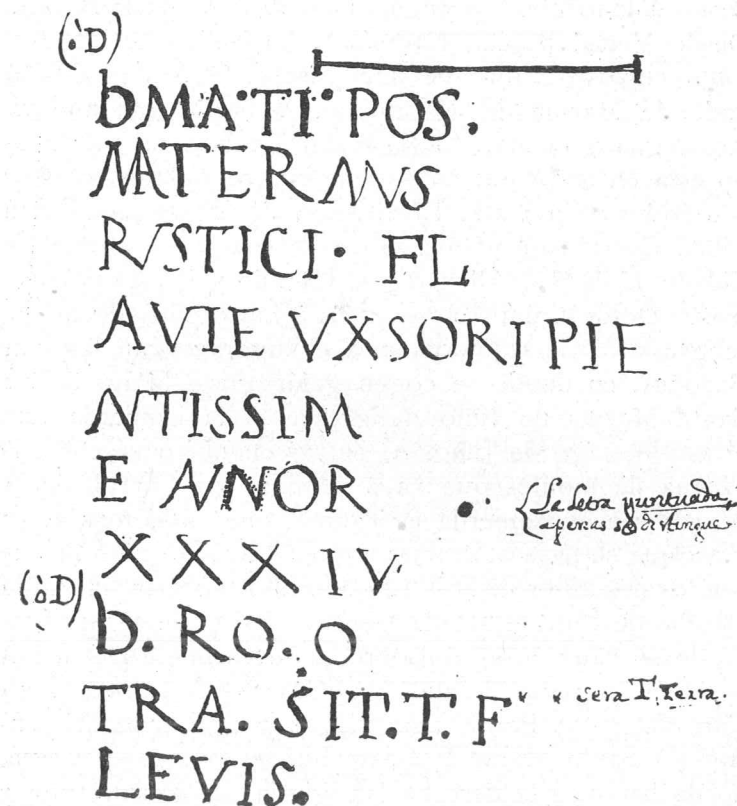 (ò D)
bMA·TI·POS.
MATERNVS
RVSTICI· FL
AVTE VXSORI PIE
NTISSIM
E ANNOR
La Letra puntuada,
apenas se distingue
XXXIV
(ò D)
b. RO. O
TRA. SIT.T.F* * sera T. Terra.
LEVIS.